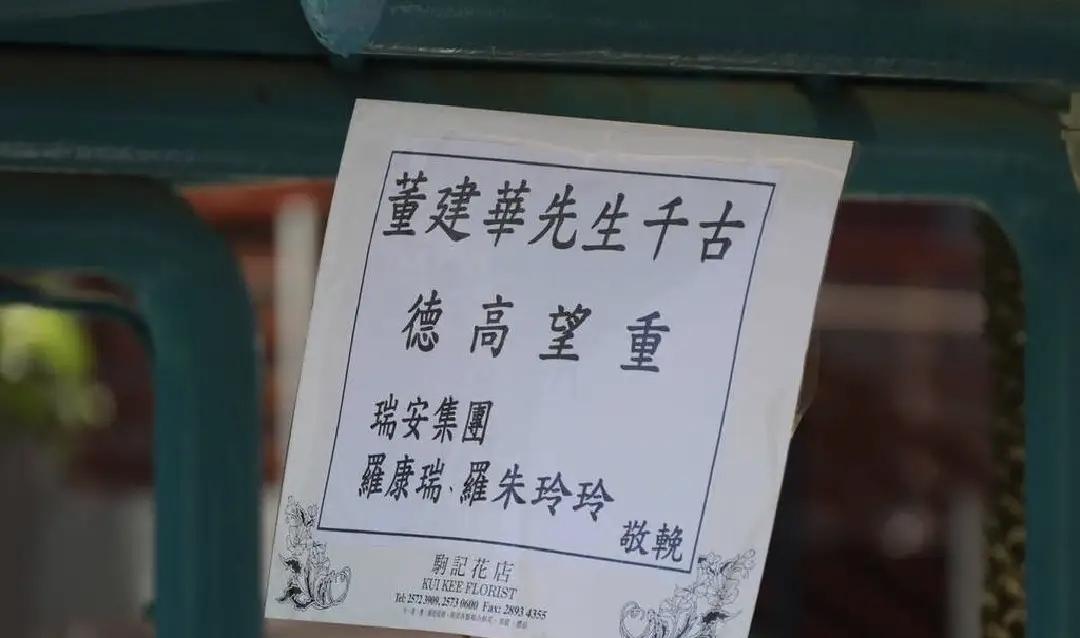 董建華先生千古
德高望重
瑞安集團
羅康瑞、羅朱玲玲
敬輓
駒記花店
KUI KEE FLORIST
Tel: 2572 3909, 2573 0600 Fax: 2893 4355